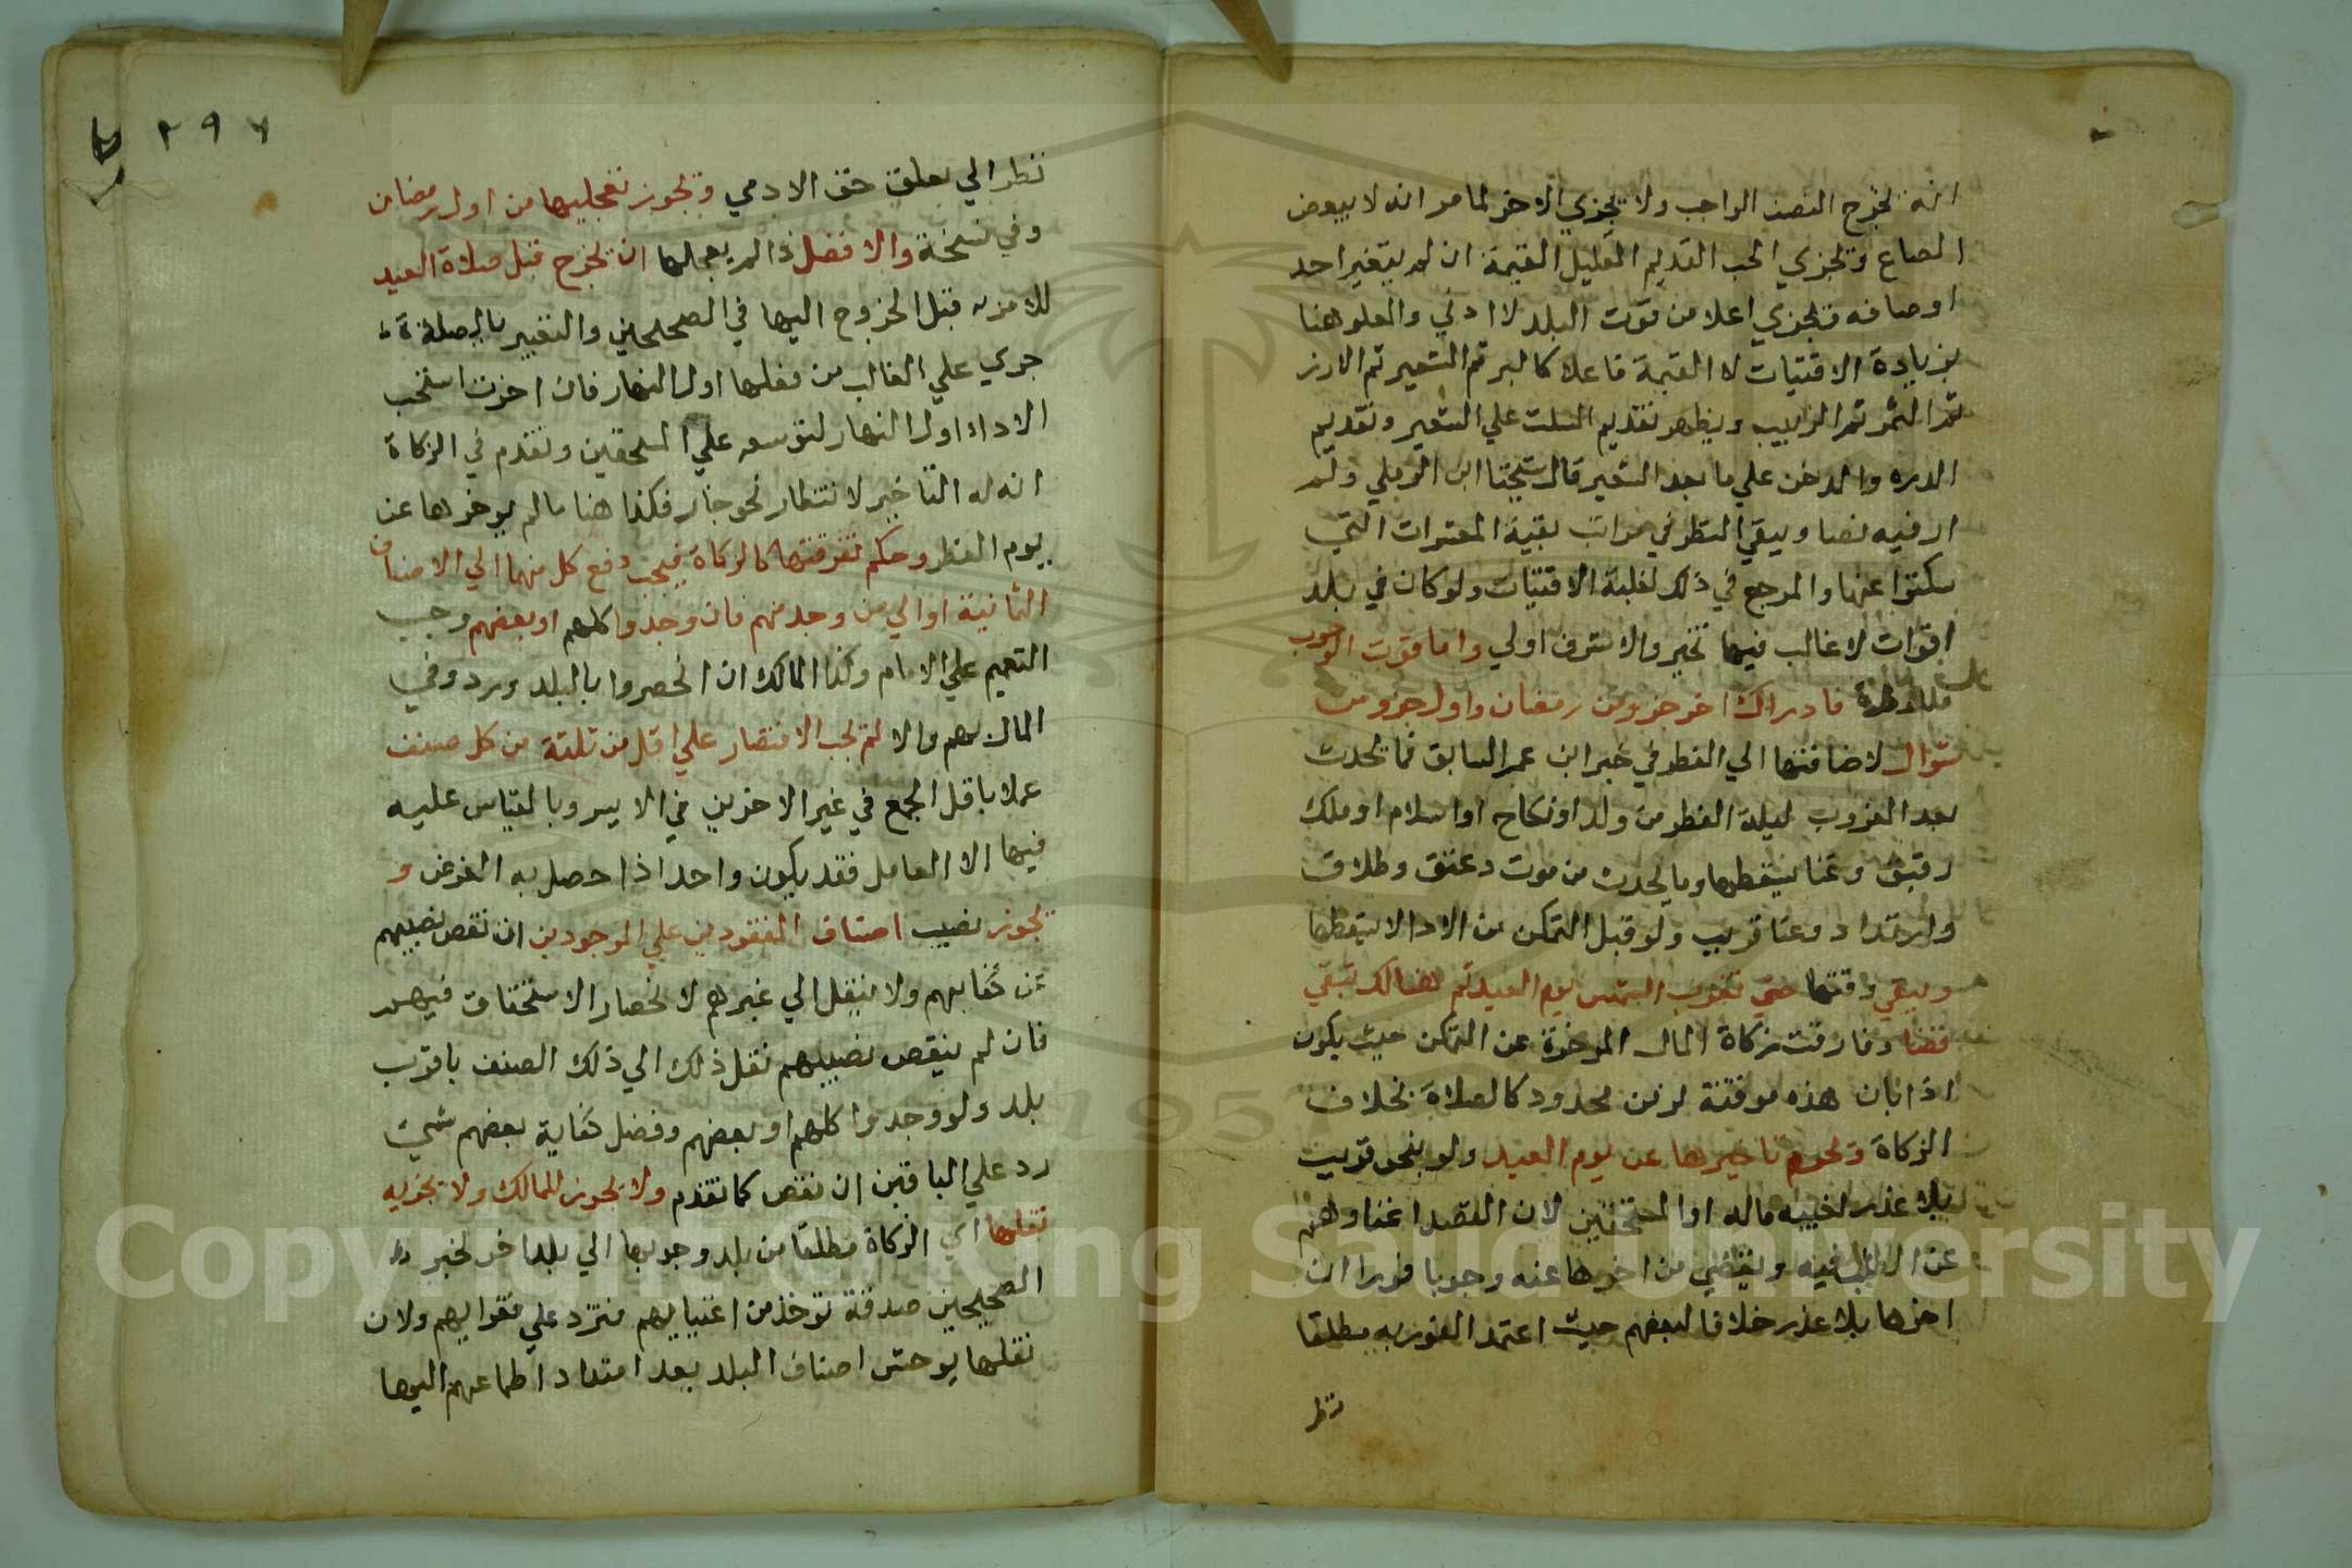 انه يخرج النصف الواجب ولا يجزي الاخر لما مر انه لا يبعض
الصاع ويجزي الحب القديم القليل القيمة ان لم يتغير احد
اوصافه ويجزي اعلا من قوت البلد لا ادني والعلو هنا
بزيادة الاقتيات لا القيمة فاعلا كالبر ثم الشعير ثم الارز
ثم التمر ثم الزبيب ويظهر تقديم السلت علي الشعير وتقديم
الدره والدخن علي ما بعد الشعير قال شيخنا ابن الرملي ولم
ار فيه نصا ويبقي النظر في مراتب بقية المعشرات التي
سكتوا عنها والمرجع في ذلك لغلبة الاقتيات ولو كان في بلد
اقوات لا غالب فيها تخير والاشرف اولي واما قوت الوجوب
فللفطرة فادراك اخر جزو من رمضان واول جزو من
شوال لاضافتها الي الفطر في خبر ابن عمر السابق فما يحدث
بعد الغروب ليلة الفطر من ولد او نكاح او اسلام او ملك
رقيق وغنا يسقطها وما يحدث من موت وعتق وطلاق
وارتداد وغنا قريب ولو قبل التمكن من الادا لا يسقطها
ويبقي وقتها حتي تغرب الشمس يوم العيد ثم هنالك تبقي
قضا وفارقت زكاة المال الموخرة عن التمكن حيث يكون
اذا بان هذه موقتة لزمن محدود كالصلاة بخلاف
الزكاة ويحرم تاخيرها عن يوم العيد ولو بنحو قريب
بلا عذر لغيبه ماله او المستحقين لان القصد اغناوهم
عن الطلب فيه ويقضي من اخرها عنه وجوبا فورا ان
اخرها بلا عذر خلافا لبعضهم حيث اعتمد الفوريه مطلقا
نظر
٢٩٧
نظرا الي تعلق حق الادمي ويجوز تعجيلها من اول رمضان
وفي نسخة والافضل اذا لم يعجلها ان يخرج قبل صلاة العيد
للامر به قبل الخروج اليها في الصحيحين والتعبير بالصلاة
جري علي الغالب من فعلها اول النهار فان اخرت استحب
الاداء اول النهار لتوسعه علي المستحقين وتقدم في الزكاة
انه له التاخير لانتظار نحو جار فكذا هنا ما لم يوخرها عن
يوم الفطر وحكم تفرقتها كالزكاة فيجب دفع كل منهما الي الاصناف
الثمانية او الي من وجد منهم فان وجدوا كلهم او بعضهم وجب
التعميم علي الامام وكذا المالك ان انحصروا بالبلد ووفي
المال بهم والا لم يجب الاقتصار علي اقل من ثلثة من كل صنف
عملا باقل الجمع في غير الاخرين في الاية وبالقياس عليه
فيها الا العامل فقد يكون واحدا اذا حصل به الغرض و
يجوز نصيب اصناف المفقودين علي الموجودين ان نقص نصيبهم
عن كفايهم ولا ينقل الي غيرهم لانحصار الاستحقاق فيهم
فان لم ينقص نصيبهم نقل ذلك الي ذلك الصنف باقرب
بلد ولو وجدوا كلهم او بعضهم وفضل كفاية بعضهم شي
رد علي الباقين ان نقص كما تقدم ولا يجوز للمالك ولا يجزيه
نقلها اي الزكاة مطلقا من بلد وجوبها الي بلد اخر لخبر
الصحيحين صدقة توخذ من اغنيايهم فترد علي فقرايهم ولان
نقلها يوحش اصناف البلد بعد امتداد اطماعهم اليها
Copyright © King Saud University
1957